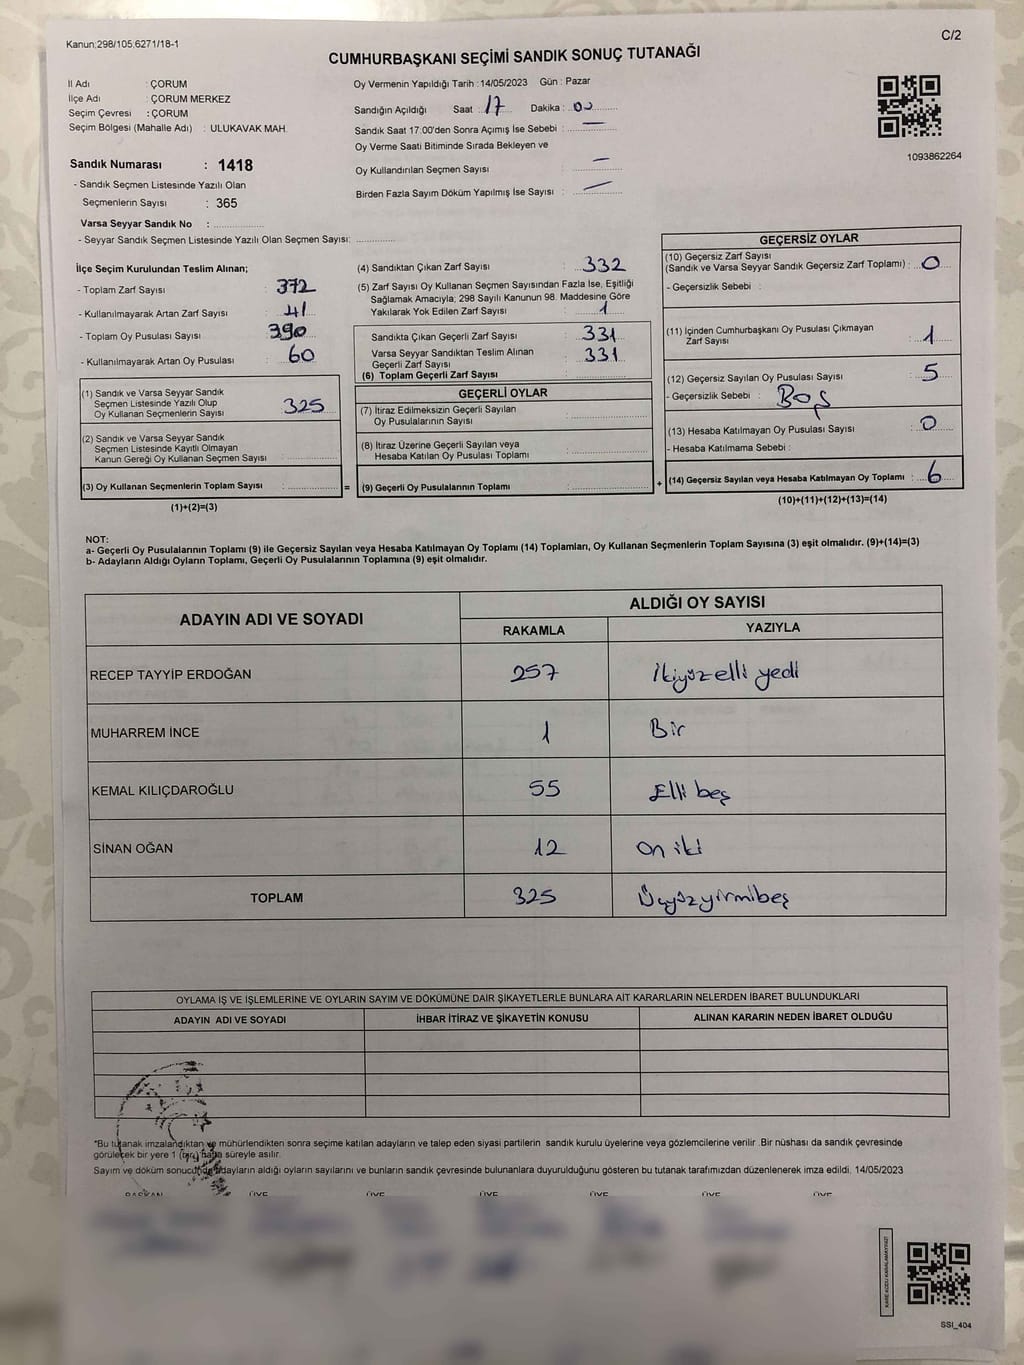 Kanun:298/105,6271/18-1
C/2
CUMHURBAŞKANI SEÇİMİ SANDIK SONUÇ TUTANAĞI
İl Adı : ÇORUM
İlçe Adı : ÇORUM MERKEZ
Seçim Çevresi : ÇORUM
Seçim Bölgesi (Mahalle Adı) : ULUKAVAK MAH.
Sandık Numarası : 1418
- Sandık Seçmen Listesinde Yazılı Olan
Seçmenlerin Sayısı : 365
Varsa Seyyar Sandık No :
- Seyyar Sandık Seçmen Listesinde Yazılı Olan Seçmen Sayısı:
Oy Vermenin Yapıldığı Tarih : 14/05/2023 Gün : Pazar
Sandığın Açıldığı Saat : 17 Dakika : 00
Sandık Saat 17:00'den Sonra Açımış İse Sebebi : —
Oy Verme Saati Bitiminde Sırada Bekleyen ve
Oy Kullandırılan Seçmen Sayısı : —
Birden Fazla Sayım Döküm Yapılmış İse Sayısı : —
1093862264
İlçe Seçim Kurulundan Teslim Alınan;
- Toplam Zarf Sayısı : 372
- Kullanılmayarak Artan Zarf Sayısı : 41
- Toplam Oy Pusulası Sayısı : 390
- Kullanılmayarak Artan Oy Pusulası : 60
(1) Sandık ve Varsa Seyyar Sandık
Seçmen Listesinde Yazılı Olup
Oy Kullanan Seçmenlerin Sayısı : 325
(2) Sandık ve Varsa Seyyar Sandık
Seçmen Listesinde Kayıtlı Olmayan
Kanun Gereği Oy Kullanan Seçmen Sayısı :
(3) Oy Kullanan Seçmenlerin Toplam Sayısı :
(1)+(2)=(3)
=
(4) Sandıktan Çıkan Zarf Sayısı : 332
(5) Zarf Sayısı Oy Kullanan Seçmen Sayısından Fazla İse, Eşitliği
Sağlamak Amacıyla; 298 Sayılı Kanunun 98. Maddesine Göre
Yakılarak Yok Edilen Zarf Sayısı : 1
Sandıkta Çıkan Geçerli Zarf Sayısı : 331
Varsa Seyyar Sandıktan Teslim Alınan
Geçerli Zarf Sayısı : 331
(6) Toplam Geçerli Zarf Sayısı :
GEÇERLİ OYLAR
(7) İtiraz Edilmeksizin Geçerli Sayılan
Oy Pusulalarının Sayısı :
(8) İtiraz Üzerine Geçerli Sayılan veya
Hesaba Katılan Oy Pusulası Toplamı :
(9) Geçerli Oy Pusulalarının Toplamı :
+
GEÇERSİZ OYLAR
(10) Geçersiz Zarf Sayısı
(Sandık ve Varsa Seyyar Sandık Geçersiz Zarf Toplamı) : 0
- Geçersizlik Sebebi :
(11) İçinden Cumhurbaşkanı Oy Pusulası Çıkmayan
Zarf Sayısı : 1
(12) Geçersiz Sayılan Oy Pusulası Sayısı : 5
- Geçersizlik Sebebi : Boş
(13) Hesaba Katılmayan Oy Pusulası Sayısı : 0
- Hesaba Katılmama Sebebi :
(14) Geçersiz Sayılan veya Hesaba Katılmayan Oy Toplamı : 6
(10)+(11)+(12)+(13)=(14)
NOT:
a- Geçerli Oy Pusulalarının Toplamı (9) ile Geçersiz Sayılan veya Hesaba Katılmayan Oy Toplamı (14) Toplamları, Oy Kullanan Seçmenlerin Toplam Sayısına (3) eşit olmalıdır. (9)+(14)=(3)
b- Adayların Aldığı Oyların Toplamı, Geçerli Oy Pusulalarının Toplamına (9) eşit olmalıdır.
ADAYIN ADI VE SOYADI
ALDIĞI OY SAYISI
RAKAMLA YAZIYLA
RECEP TAYYİP ERDOĞAN 257 İkiyüzelli yedi
MUHARREM İNCE 1 Bir
KEMAL KILIÇDAROĞLU 55 Elli beş
SİNAN OĞAN 12 On iki
TOPLAM 325 Üçyüzyirmibeş
OYLAMA İŞ VE İŞLEMLERİNE VE OYLARIN SAYIM VE DÖKÜMÜNE DAİR ŞİKAYETLERLE BUNLARA AİT KARARLARIN NELERDEN İBARET BULUNDUKLARI
ADAYIN ADI VE SOYADI İHBAR İTİRAZ VE ŞİKAYETİN KONUSU ALINAN KARARIN NEDEN İBARET OLDUĞU
*Bu tutanak imzalandıktan ve mühürlendikten sonra seçime katılan adayların ve talep eden siyasi partilerin sandık kurulu üyelerine veya gözlemcilerine verilir .Bir nüshası da sandık çevresinde
görülecek bir yere 1 (bir) hafta süreyle asılır.
Sayım ve döküm sonucunda adayların aldığı oyların sayılarını ve bunların sandık çevresinde bulunanlara duyurulduğunu gösteren bu tutanak tarafımızdan düzenlenerek imza edildi. 14/05/2023
BAŞKAN ÜYE ÜYE ÜYE ÜYE ÜYE ÜYE
KARE KODU KARALAMAYINIZ!
SSI_404